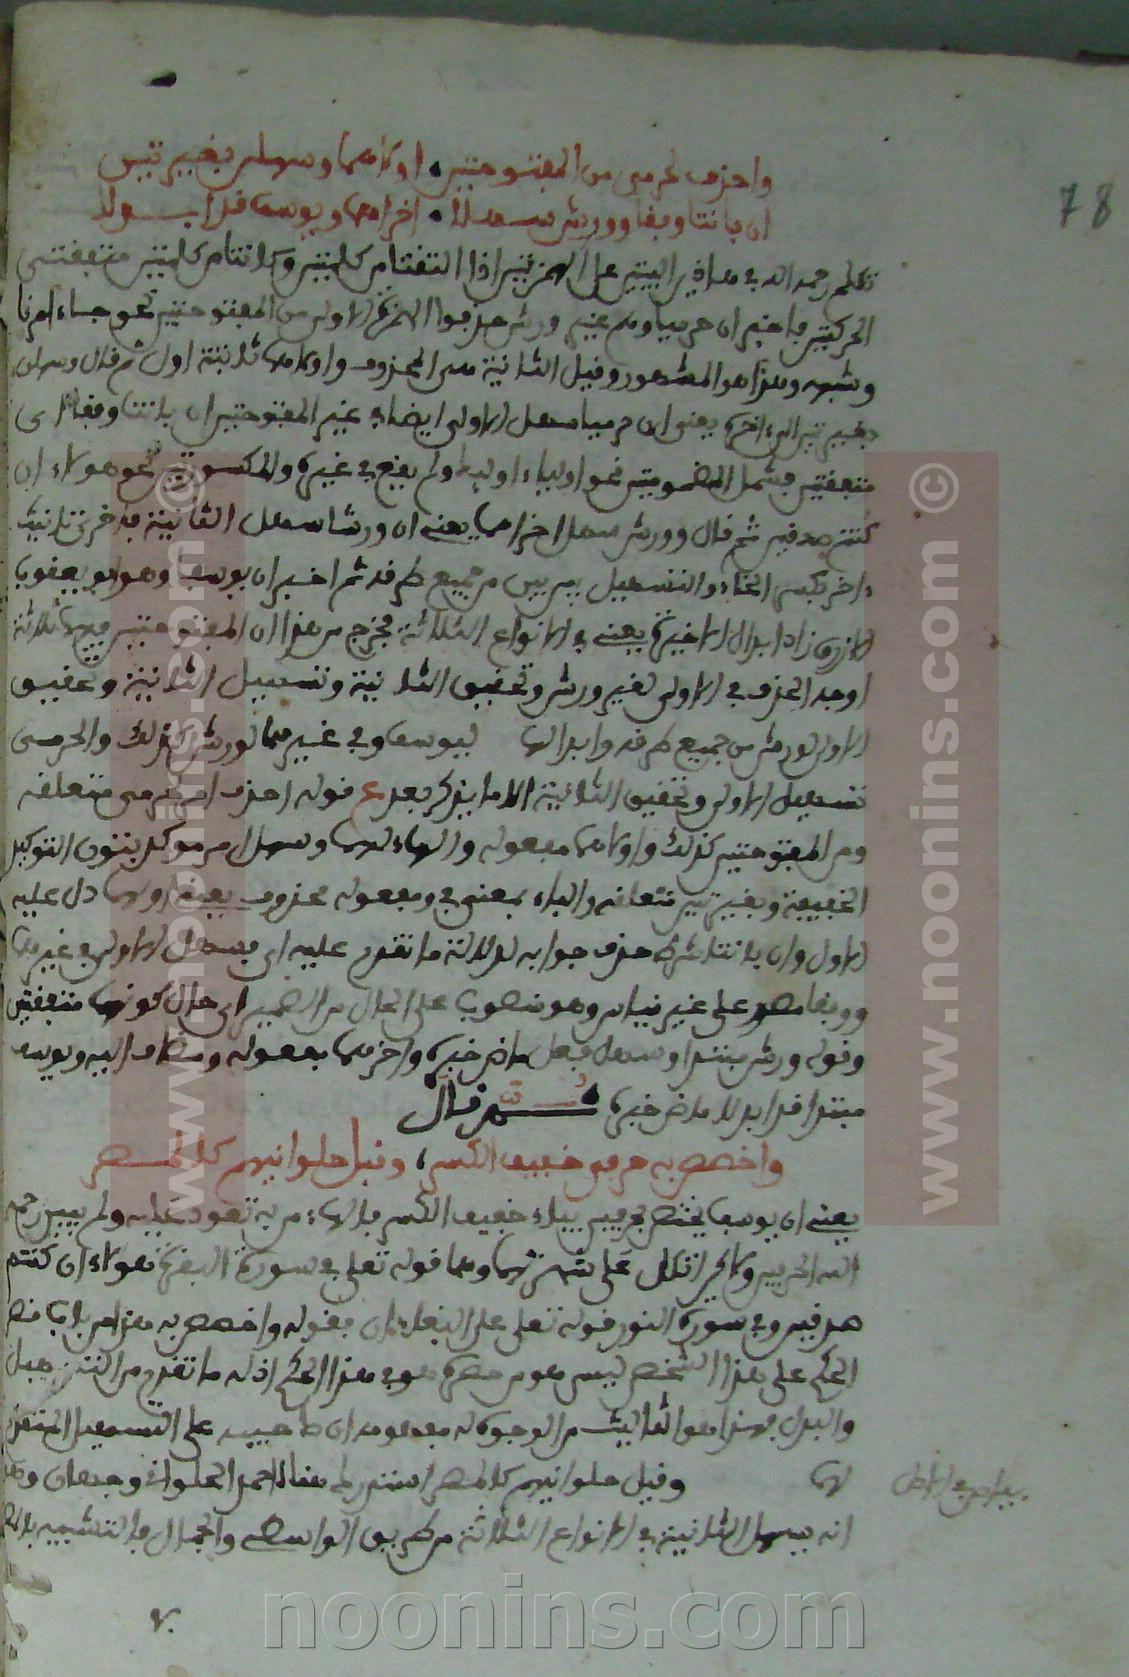 واحذف لحرمي من المفتوحتين أولاهما وسهلن بغير تين
إن باتتا وفقا وورش سهلا أخراهما ويوسف قد أبدلا
78
تكلم رحمه الله في هاذين البيتين على الهمزتين اذا التقتا من كلمتين وكانتا من كلمتين متفقتي
الحركتين فاخبر ان حرميا وهم غير ورش حذفوا الهمزة الاولى من المفتوحتين نحو جاء امرنا
وشبهه وهذا هو المشهور وقيل الثانية هي المحذوف واولاهما ثم قال وسهلن
بغير تين الى اخره يعني ان حرميا سهل الاولى ايضا في غير المفتوحتين ان باتتا وفقا اى
متفقتين فشمل المضمومتين نحو اولياء اوليك ولم يقع في غيره والمكسورتين نحو هؤلاء ان
كنتم صدقين ثم قال وورش سهل اخراهما يعني ان ورشا سهل الثانية
اخر بكسر الخاء والتسهيل بين بين من جميع طرقه ثم اخبر ان يوسف وهو ابو يعقوب
الازرق زاد ابدال الاخيرة يعني في الانواع الثلاثة فخرج من هذا ان المفتوحتين فيهما ثلاثة
اوجه الحذف في الاولى لغير ورش وتحقيق الثانية وتسهيل الثانية وتحقيق
الاولى لورش من جميع طرقه وابدالها ليوسف وفي غيرهما لورش كذلك والحرمى
تسهيل الاولى وتحقيق الثانية الا ما يذكر بعد ع قوله احذف امر لحرمى متعلقه
ومن المفتوحتين كذلك واولاهما مفعوله والهاء لهما وسهلن امر موكد بنون التوكيد
الخفيفة وبغير تين متعلقه والباء بمعنى في ومفعوله محذوف يعني اولهما دل عليه
الاول وان باتتا شرط حذف جوابه لدلالة ما تقدم عليه اى فسهل الاولى في غيرهما
ووفقا مصدر على غير قياس وهو منصوب على الحال من الضمير اى حال كونهما متفقتين
وقوله ورش مبتدا وسهل فعل ماض خبره واخرهما مفعوله ومضاف اليه ويوسف
مبتدا قد ابدلا ماض خبره ثم قال
واخصص به حرفي خفيف الكسر وقيل حلوانيهم كالمصر
يعني ان يوسف يختص بحرفين بياء خفيف الكسر فالهاء من به تعود عليه ولم يبين رحمه
الله الحرفين ولاكن اتكل على شهرتهما وهما قوله تعلى في سورة البقرة هؤلاء ان كنتم
صدقين وفي سورة النور قوله تعلى على البغاء ان فقوله واخصص به هذا من باب قصر
الحكم على هذا الشخص ليس هو من حصره هو في هذا الحكم اذ له ما تقدم من التسهيل
والبدل فهذا هو الثالث من الوجوه له
لهما وقيل حلوانيهم كالمصر استدرك هنا لاحمد الحلواني وجهان وهو
انه يسهل الثانية في الانواع الثلاثة من طريق الواسطي والجمال فالتشبيه
noonins.com
www.noonins.com ©
www.noonins.com ©